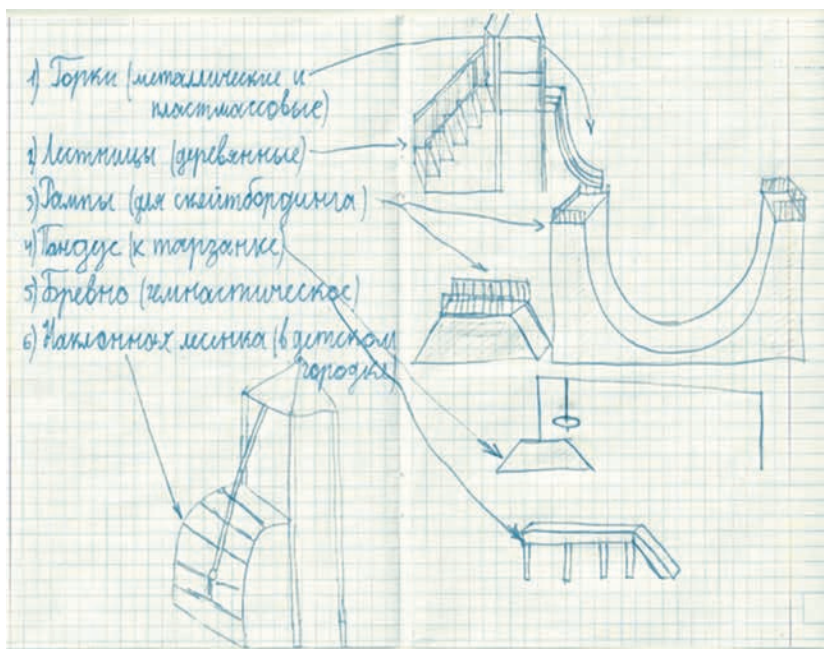 1) Горки (металлические и
пластмассовые)
2) Лестницы (деревянные)
3) Рампы (для скейтбординга)
4) Пандус (к тарзанке)
5) Бревно (гемнастическое)
6) Наклонная лесенка (в детском
городке)